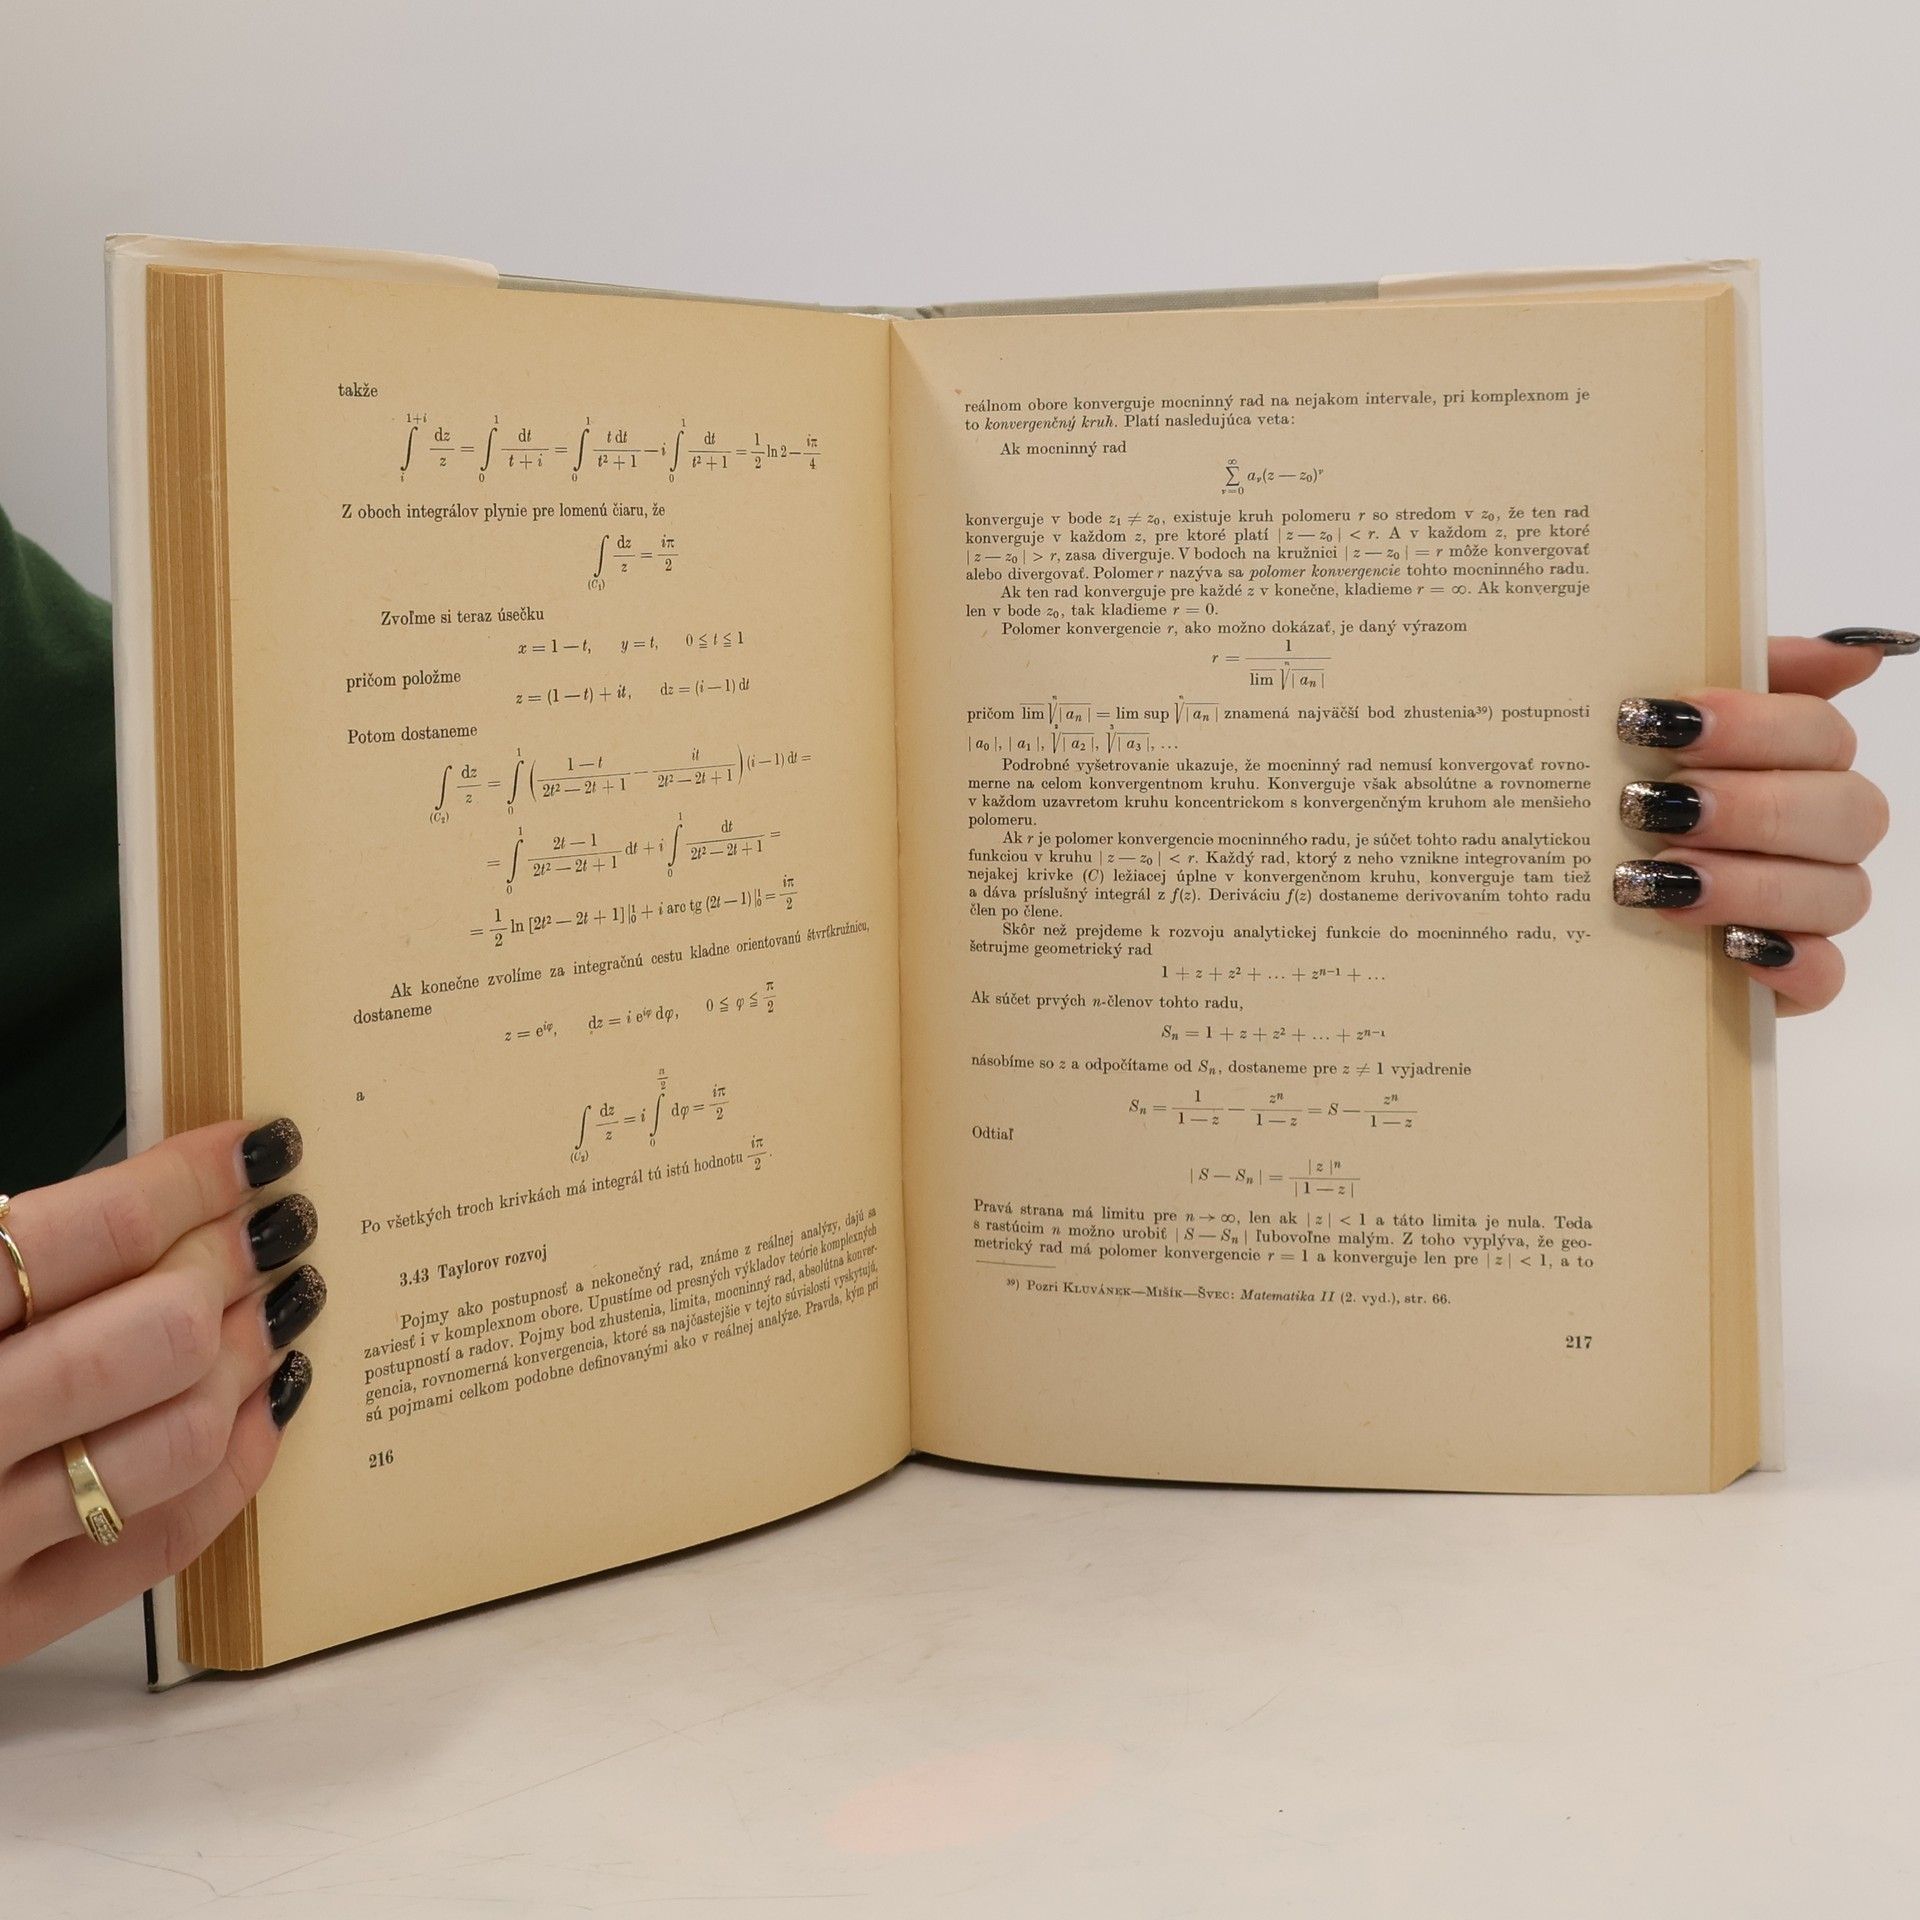 takže
∫_i^{1+i} dz/z = ∫_0^1 dt/(t + i) = ∫_0^1 t dt/(t² + 1) — i ∫_0^1 dt/(t² + 1) = 1/2 ln 2 — iπ/4
Z oboch integrálov plynie pre lomenú čiaru, že
∫_(C₁) dz/z = iπ/2
Zvoľme si teraz úsečku
x = 1 — t, y = t, 0 ≦ t ≦ 1
pričom položme
z = (1 — t) + it, dz = (i — 1) dt
Potom dostaneme
∫_(C₂) dz/z = ∫_0^1 ( (1 — t)/(2t² — 2t + 1) — it/(2t² — 2t + 1) ) (i — 1) dt =
= ∫_0^1 (2t — 1)/(2t² — 2t + 1) dt + i ∫_0^1 dt/(2t² — 2t + 1) =
= 1/2 ln [2t² — 2t + 1] |_0^1 + i arc tg (2t — 1) |_0^1 = iπ/2
Ak konečne zvolíme za integračnú cestu kladne orientovanú štvrťkružnicu,
dostaneme
z = e^{iφ}, dz = i e^{iφ} dφ, 0 ≦ φ ≦ π/2
a
∫_(C₂) dz/z = i ∫_0^{π/2} dφ = iπ/2
Po všetkých troch krivkách má integrál tú istú hodnotu iπ/2.
3.43 Taylorov rozvoj
Pojmy ako postupnosť a nekonečný rad, známe z reálnej analýzy, dajú sa
zaviesť i v komplexnom obore. Upustíme od presných výkladov teórie komplexných
postupností a radov. Pojmy bod zhustenia, limita, mocninný rad, absolútna konver-
gencia, rovnomerná konvergencia, ktoré sa najčastejšie v tejto súvislosti vyskytujú,
sú pojmami celkom podobne definovanými ako v reálnej analýze. Pravda, kým pri
216
reálnom obore konverguje mocninný rad na nejakom intervale, pri komplexnom je
to konvergenčný kruh. Platí nasledujúca veta:
Ak mocninný rad
∑_{ν=0}^∞ a_ν(z — z₀)^ν
konverguje v bode z₁ ≠ z₀, existuje kruh polomeru r so stredom v z₀, že ten rad
konverguje v každom z, pre ktoré platí | z — z₀ | < r. A v každom z, pre ktoré
| z — z₀ | > r, zasa diverguje. V bodoch na kružnici | z — z₀ | = r môže konvergovať
alebo divergovať. Polomer r nazýva sa polomer konvergencie tohto mocninného radu.
Ak ten rad konverguje pre každé z v konečne, kladieme r = ∞. Ak konverguje
len v bode z₀, tak kladieme r = 0.
Polomer konvergencie r, ako možno dokázať, je daný výrazom
r = 1/(lim̅ ⁿ√| aₙ |)
pričom lim̅ ⁿ√| aₙ | = lim sup ⁿ√| aₙ | znamená najväčší bod zhustenia³⁹) postupnosti
| a₀ |, | a₁ |, ²√| a₂ |, ³√| a₃ |, ...
Podrobné vyšetrovanie ukazuje, že mocninný rad nemusí konvergovať rovno-
merne na celom konvergentnom kruhu. Konverguje však absolútne a rovnomerne
v každom uzavretom kruhu koncentrickom s konvergenčným kruhom ale menšieho
polomeru.
Ak r je polomer konvergencie mocninného radu, je súčet tohto radu analytickou
funkciou v kruhu | z — z₀ | < r. Každý rad, ktorý z neho vznikne integrovaním po
nejakej krivke (C) ležiacej úplne v konvergenčnom kruhu, konverguje tam tiež
a dáva príslušný integrál z f(z). Deriváciu f(z) dostaneme derivovaním tohto radu
člen po člene.
Skôr než prejdeme k rozvoju analytickej funkcie do mocninného radu, vy-
šetrujme geometrický rad
1 + z + z² + ... + zⁿ⁻¹ + ...
Ak súčet prvých n-členov tohto radu,
Sₙ = 1 + z + z² + ... + zⁿ⁻¹
násobíme so z a odpočítame od Sₙ, dostaneme pre z ≠ 1 vyjadrenie
Sₙ = 1/(1 — z) — zⁿ/(1 — z) = S — zⁿ/(1 — z)
Odtiaľ
| S — Sₙ | = | z |ⁿ/| 1 — z |
Pravá strana má limitu pre n → ∞, len ak | z | < 1 a táto limita je nula. Teda
s rastúcim n možno urobiť | S — Sₙ | ľubovoľne malým. Z toho vyplýva, že geo-
metrický rad má polomer konvergencie r = 1 a konverguje len pre | z | < 1, a to
³⁹) Pozri KLUVÁNEK—MIŠÍK—ŠVEC: Matematika II (2. vyd.), str. 66.
217